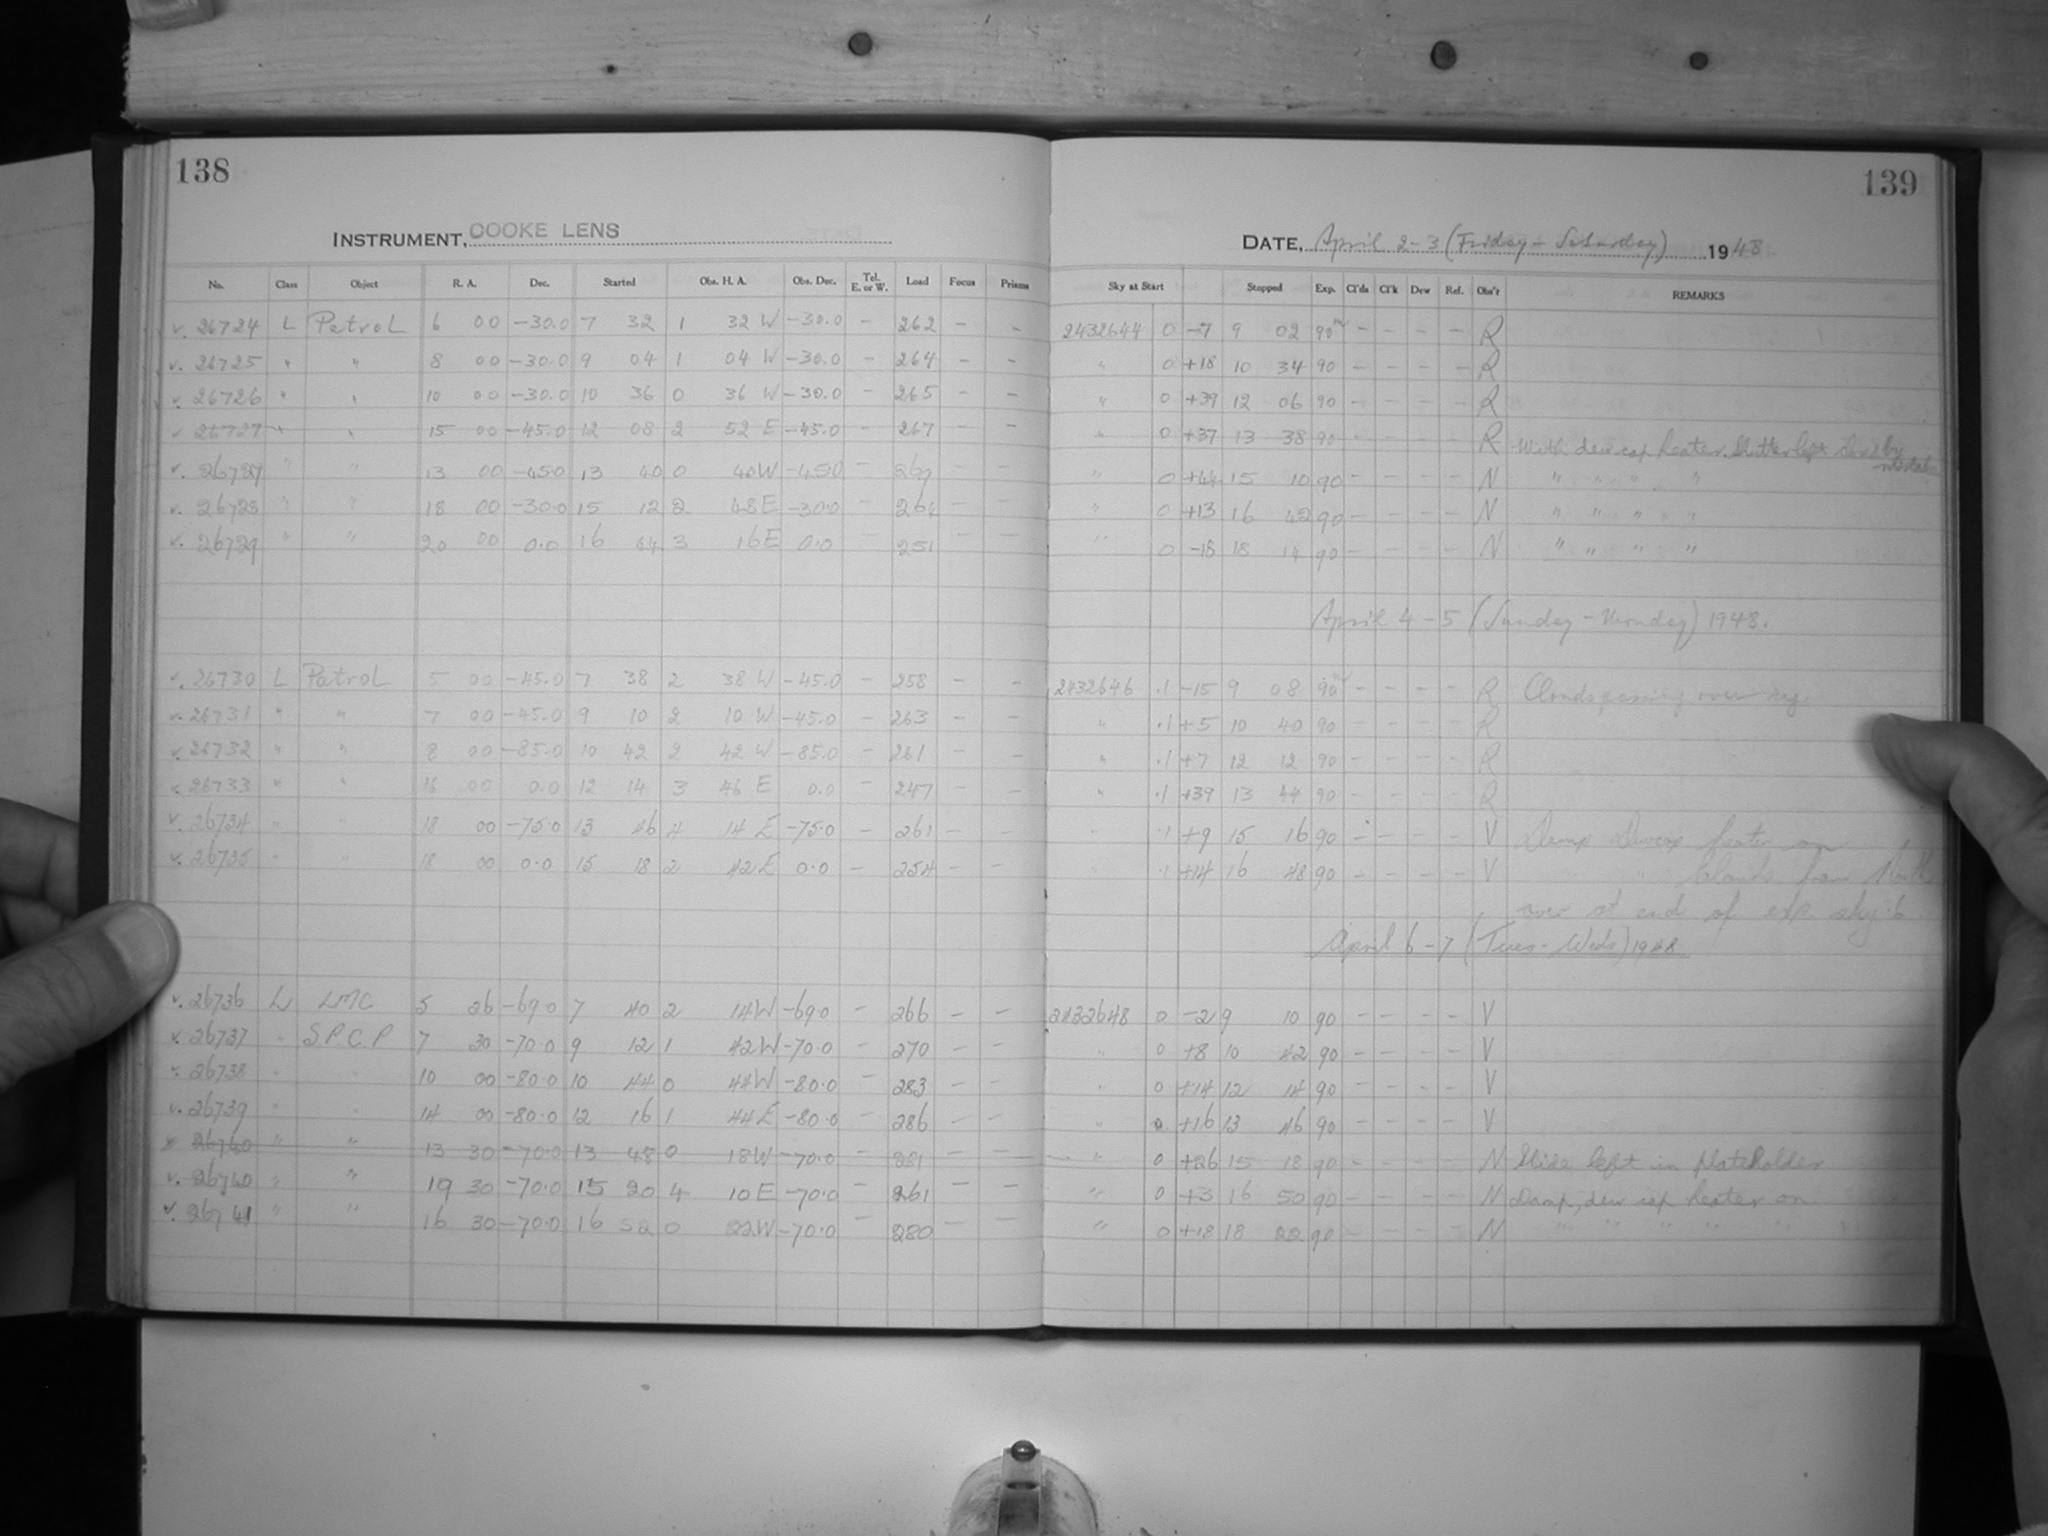 138
139
INSTRUMENT, COOKE LENS
DATE, April 2-3 (Friday - Saturday) 1948
No. Class Object R. A. Dec. Started Obs. H. A. Obs. Dec. Tel. E. or W. Load Focus Prisms Sky at Start Stopped Exp. Cl'ds Cl'k Dew Ref. Obs'r REMARKS
v. 26724 L Patrol 6 00 -30.0 7 32 1 32 W -30.0 - 262 - - 2432644 0 -7 9 02 90m - - - - R
v. 26725 " " 8 00 -30.0 9 04 1 04 W -30.0 - 264 - - " 0 +18 10 34 90 - - - - R
v. 26726 " " 10 00 -30.0 10 36 0 36 W -30.0 - 265 - - " 0 +39 12 06 90 - - - - R
v 26727 " " 15 00 -45.0 12 08 2 52 E -45.0 - 267 - - " 0 +37 13 38 90 - - - - R With dew cap heater. Shutter left closed by mistake
v. 26727 " " 13 00 -45.0 13 40 0 40 W -45.0 - 269 - - " 0 +44 15 10 90 - - - - N " " " " "
v. 26728 " " 18 00 -30.0 15 12 2 48 E -30.0 - 264 - - " 0 +13 16 42 90 - - - - N " " " " "
v. 26729 " " 20 00 0.0 16 44 3 16 E 0.0 - 251 - - " 0 -18 18 14 90 - - - - N " " " " "
April 4-5 (Sunday - Monday) 1948.
v. 26730 L Patrol 5 00 -45.0 7 38 2 38 W -45.0 - 258 - - 2432646 .1 -15 9 08 90m - - - - R Clouds passing over sky.
v. 26731 " " 7 00 -45.0 9 10 2 10 W -45.0 - 263 - - " .1 +5 10 40 90 - - - - R
v. 26732 " " 8 00 -85.0 10 42 2 42 W -85.0 - 261 - - " .1 +7 12 12 90 - - - - R
v 26733 " " 16 00 0.0 12 14 3 46 E 0.0 - 247 - - " .1 +39 13 44 90 - - - - R
v. 26734 " " 18 00 -75.0 13 46 4 14 E -75.0 - 261 - - " .1 +9 15 16 90 - - - - V Damp Dewcap heater on
v. 26735 " " 18 00 0.0 15 18 2 42 E 0.0 - 254 - - " .1 +14 16 48 90 - - - - V " Clouds from North
over at end of exp. sky .6
April 6-7 (Tues - Weds) 1948
v. 26736 L LMC 5 26 -69.0 7 40 2 14 W -69.0 - 266 - - 2432648 0 -2 9 10 90 - - - - V
v. 26737 " S.P.C.P 7 30 -70.0 9 12 1 42 W -70.0 - 270 - - " 0 +8 10 42 90 - - - - V
v. 26738 " " 10 00 -80.0 10 44 0 44 W -80.0 - 283 - - " 0 +14 12 14 90 - - - - V
v. 26739 " " 14 00 -80.0 12 16 1 44 E -80.0 - 286 - - " 0 +16 13 46 90 - - - - V
26740 " " 13 30 -70.0 13 48 0 18 W -70.0 - 281 - - " 0 +26 15 18 90 - - - - N Slide left in plateholder
v. 26740 " " 19 30 -70.0 15 20 4 10 E -70.0 - 261 - - " 0 +3 16 50 90 - - - - N Damp, dew cap heater on
v. 26741 " " 16 30 -70.0 16 52 0 22 W -70.0 - 280 - - " 0 +18 18 22 90 - - - - N " " " " " "